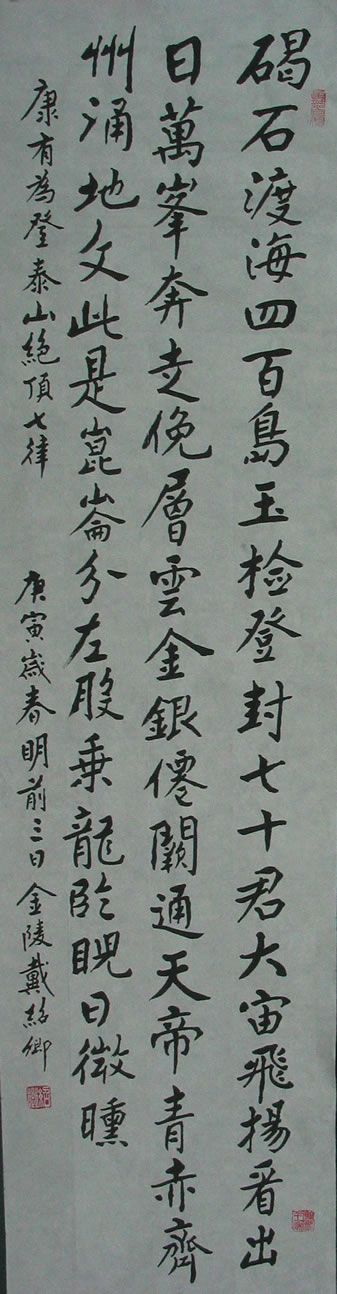 碣石渡海四百島玉檢登封七十君大宙飛揚看出
日萬峯奔走俛層雲金銀僊闕通天帝青赤齊
州涌地文此是崑崙分左股乘龍臨睨日微曛
康有為登泰山絕頂七律
庚寅歲春明前三日金陵戴紹卿